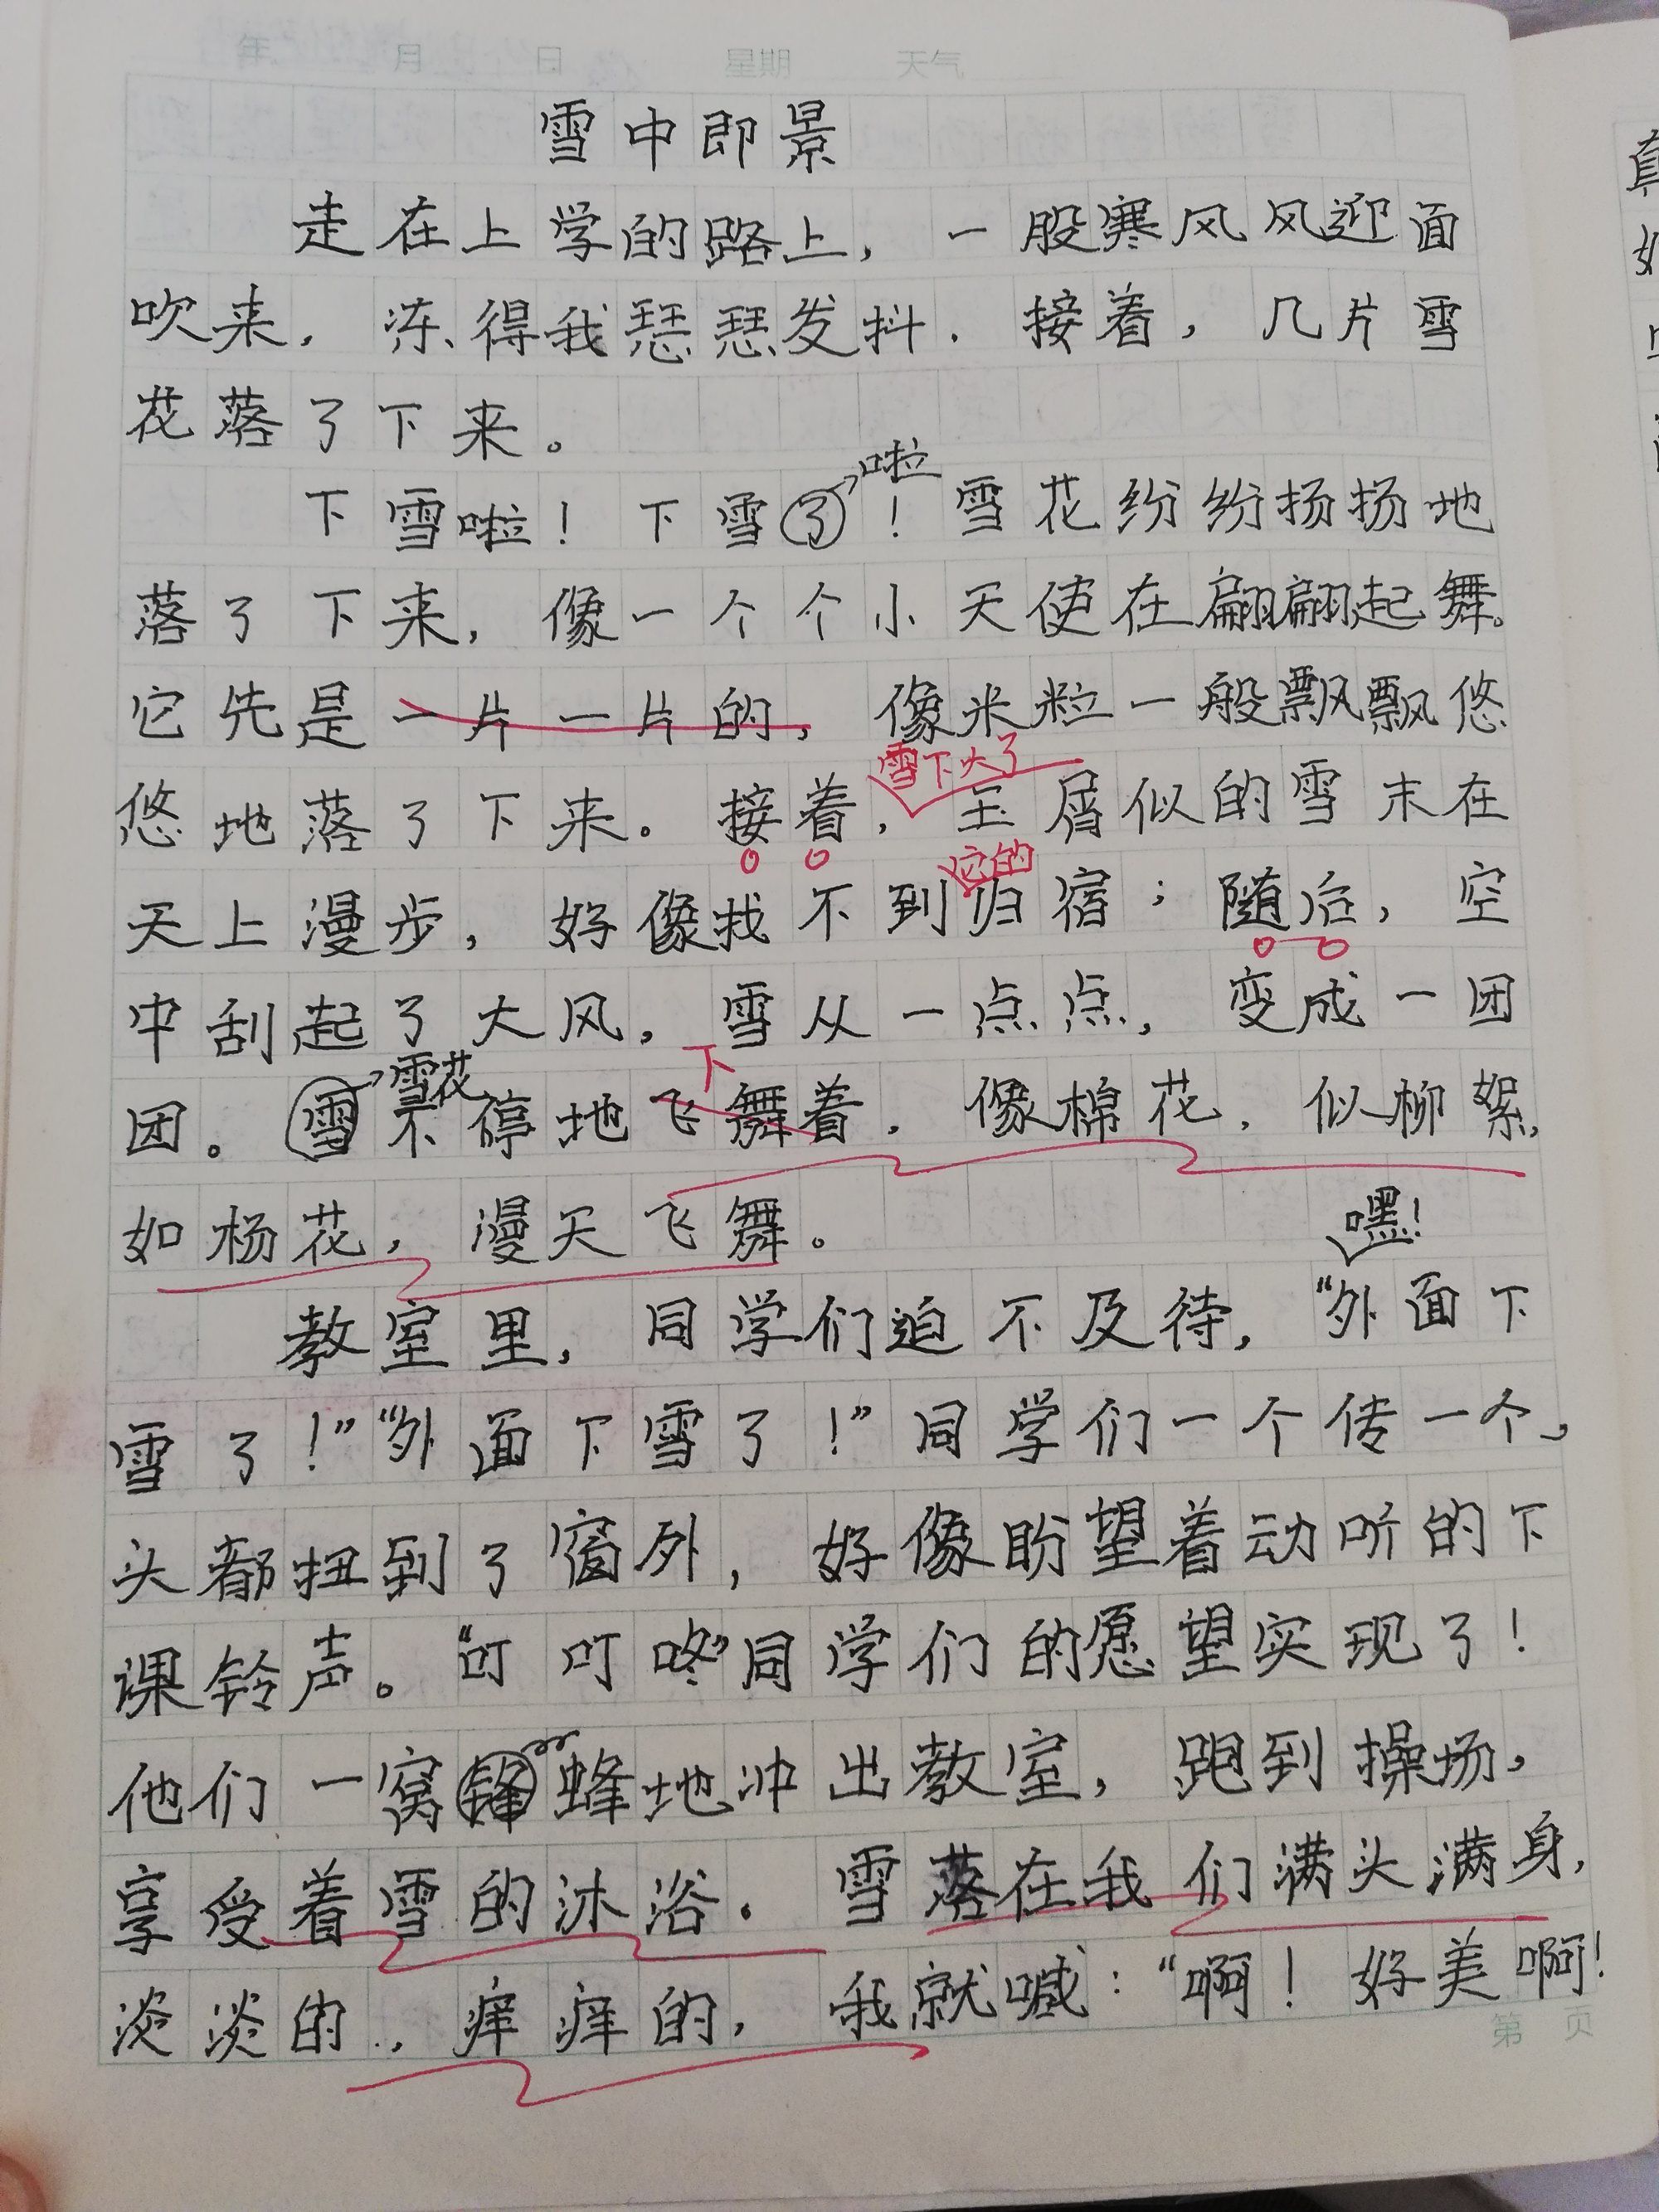 年 月 日 星期 天气
雪中即景
走在上学的路上，一股寒风风迎面
吹来，冻得我瑟瑟发抖．接着，几片雪
花落了下来。
啦
下雪啦！下雪了！雪花纷纷扬扬地
落了下来，像一个个小天使在翩翩起舞。
它先是一片一片的，像米粒一般飘飘悠
雪下大了
悠地落了下来。接着，玉屑似的雪末在
它的
天上漫步，好像找不到归宿；随后，空
中刮起了大风，雪从一点点，变成一团
雪花 下
团。雪不停地飞舞着．像棉花，似柳絮，
如杨花，漫天飞舞。
嘿！
教室里，同学们迫不及待，“外面下
雪了！”“外面下雪了！”同学们一个传一个，
头都扭到了窗外，好像盼望着动听的下
课铃声。“叮叮咚”同学们的愿望实现了！
他们一窝蜂地冲出教室，跑到操场，
享受着雪的沐浴．雪落在我们满头满身，
淡淡的．，痒痒的，我就喊：“啊！好美啊！
第 页